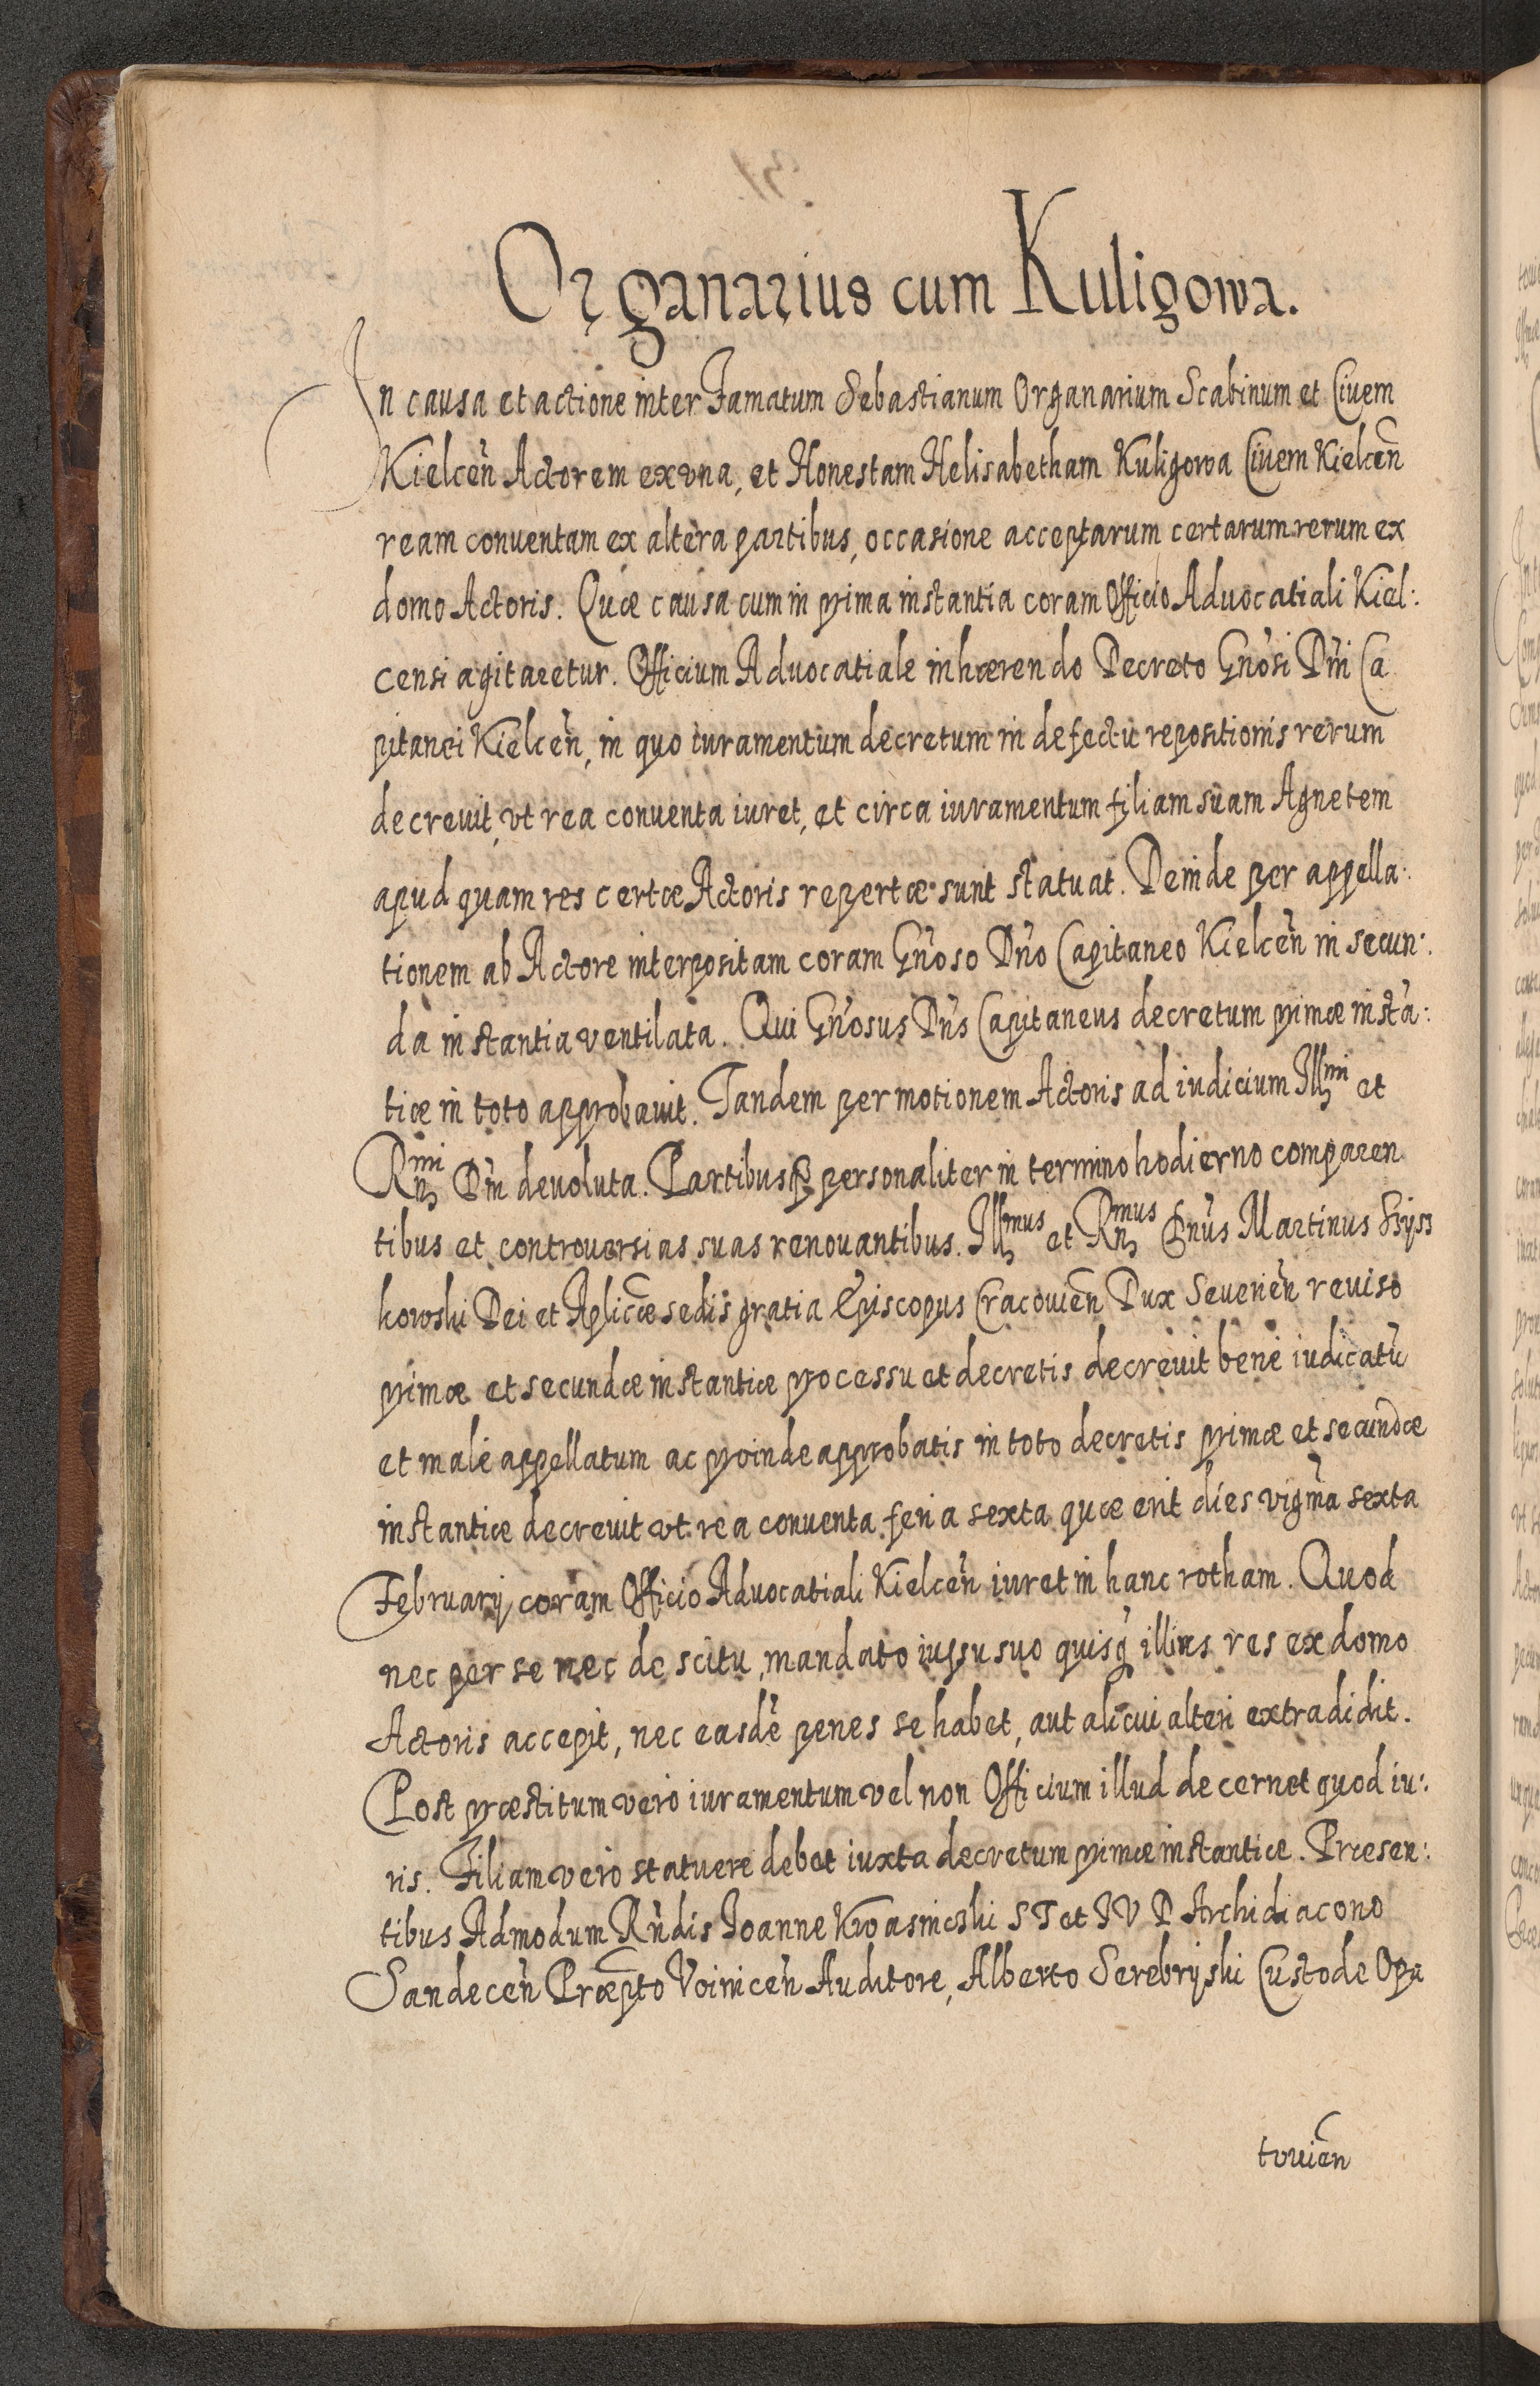 Organarius cum Kuligowa.
In causa et actione inter Famatum Sebastianum Organarium Scabinum et Ciuem
Kielceñ Actorem ex vna, et Honestam Helisabetham Kuligowa Ciuem Kielceñ
ream conuentam ex altera partibus, occasione acceptarum certarum rerum ex
domo Actoris. Quæ causa cum in prima instantia coram Officio Aduocatiali Kiel:
censi agitaretur. Officium Aduocatiale inhærendo Decreto Gñosi Dñi Ca
pitanei Kielceñ, in quo iuramentum decretum in defectu repositionis rerum
decreuit, vt rea conuenta iuret, et circa iuramentum filiam suam Agnetem
apud quam res certæ Actoris repertæ sunt statuat. Deinde per appella:
tionem ab Actore interpositam coram Gñoso Dño Capitaneo Kielceñ in secun:
da instantia ventilata. Qui Gñosus Dñs Capitaneus decretum primæ instã:
tiæ in toto approbauit. Tandem per motionem Actoris ad iudicium Illmi et
Rmi Dñi deuoluta. Partibusq personaliter in termino hodierno comparen
tibus et controuersias suas renouantibus. Illmus et Rmus Dñus Martinus Szysz
kowski Dei et Aplicæ sedis gratia Episcopus Cracouieñ Dux Seuerieñ reuiso
primæ et secundæ instantiæ processu et decretis decreuit bene iudicatũ
et male appellatum ac proinde approbatis in toto decretis primæ et secundæ
instantiæ decreuit vt rea conuenta feria sexta quæ erit dies vigm̃a sexta
Februarij coram Officio Aduocatiali Kielceñ iuret in hanc rotham. Quod
nec per se nec de scitu, mandato iussu suo quisq illius res ex domo
Actoris accepit, nec easdẽ penes se habet, aut alicui alteri extradidit.
Post præstitum vero iuramentum vel non Officium illud decernet quod iu:
ris. Filiam vero statuere debet iuxta decretum primæ instantiæ. Præsen:
tibus Admodum Rñdis Ioanne Kwasnieski S T et I V D Archidiacono
Sandeceñ Præpto Voiniceñ Auditore, Alberto Serebryski Custode Opa
touieñ